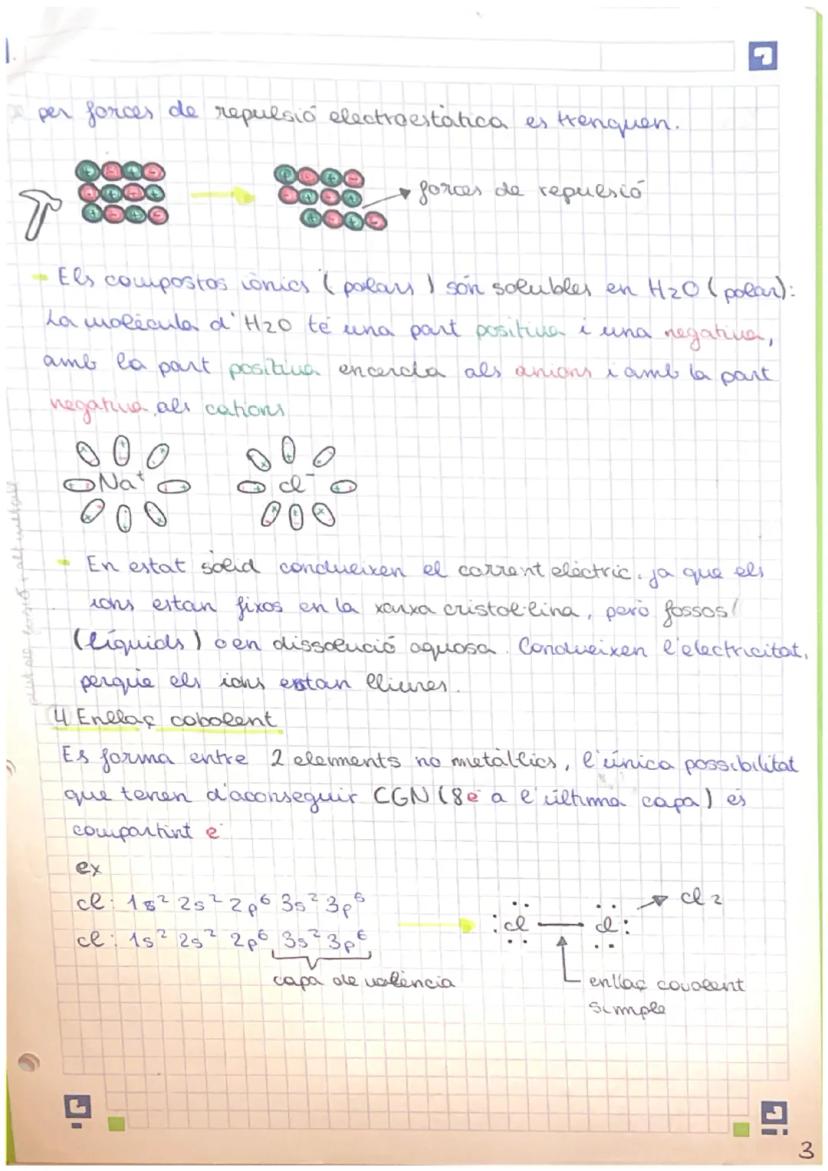 per forces de repulsió electroestàtica es trenquen.
forces de repulsió
- Els compostos iònics (polars) són solubles en H2O (polar):
La molècula d'H2O té una part positiva i una negativa,
amb la part positiva encercla als anions i amb la part
negativa, als cations
Na⁺ Cl⁻
- En estat sòlid condueixen el corrent elèctric. ja que els
ions estan fixos en la xarxa cristal·lina, però fossos/
(líquids) o en dissolució aquosa. Condueixen l'electricitat,
perquè els ions estan lliures.
4 Enllaç cobalent
Es forma entre 2 elements no metàl·lics, l'única possibilitat
que tenen d'aconseguir CGN (8e⁻ a l'última capa) és
compartint e⁻
ex
cl: 1s² 2s² 2p⁶ 3s² 3p⁵
cl: 1s² 2s² 2p⁶ 3s² 3p⁶
capa de valència
:cl — cl:
cl2
enllaç covalent
simple
3